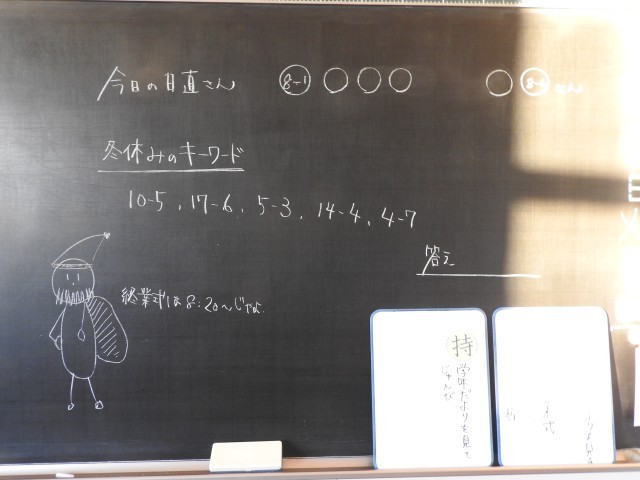 今日の日直さん 8-1 〇 〇 〇 〇 さん
冬休みのキーワード
10-5、17-6、5-3、14-4、4-7
答え
終業式は8:20～じゃよ.
持
学年だよりを見て
じゅんび